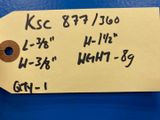 KSC 877/360
L-3/8" H-1½"
W-3/8" WGHT-8g
QTY-1